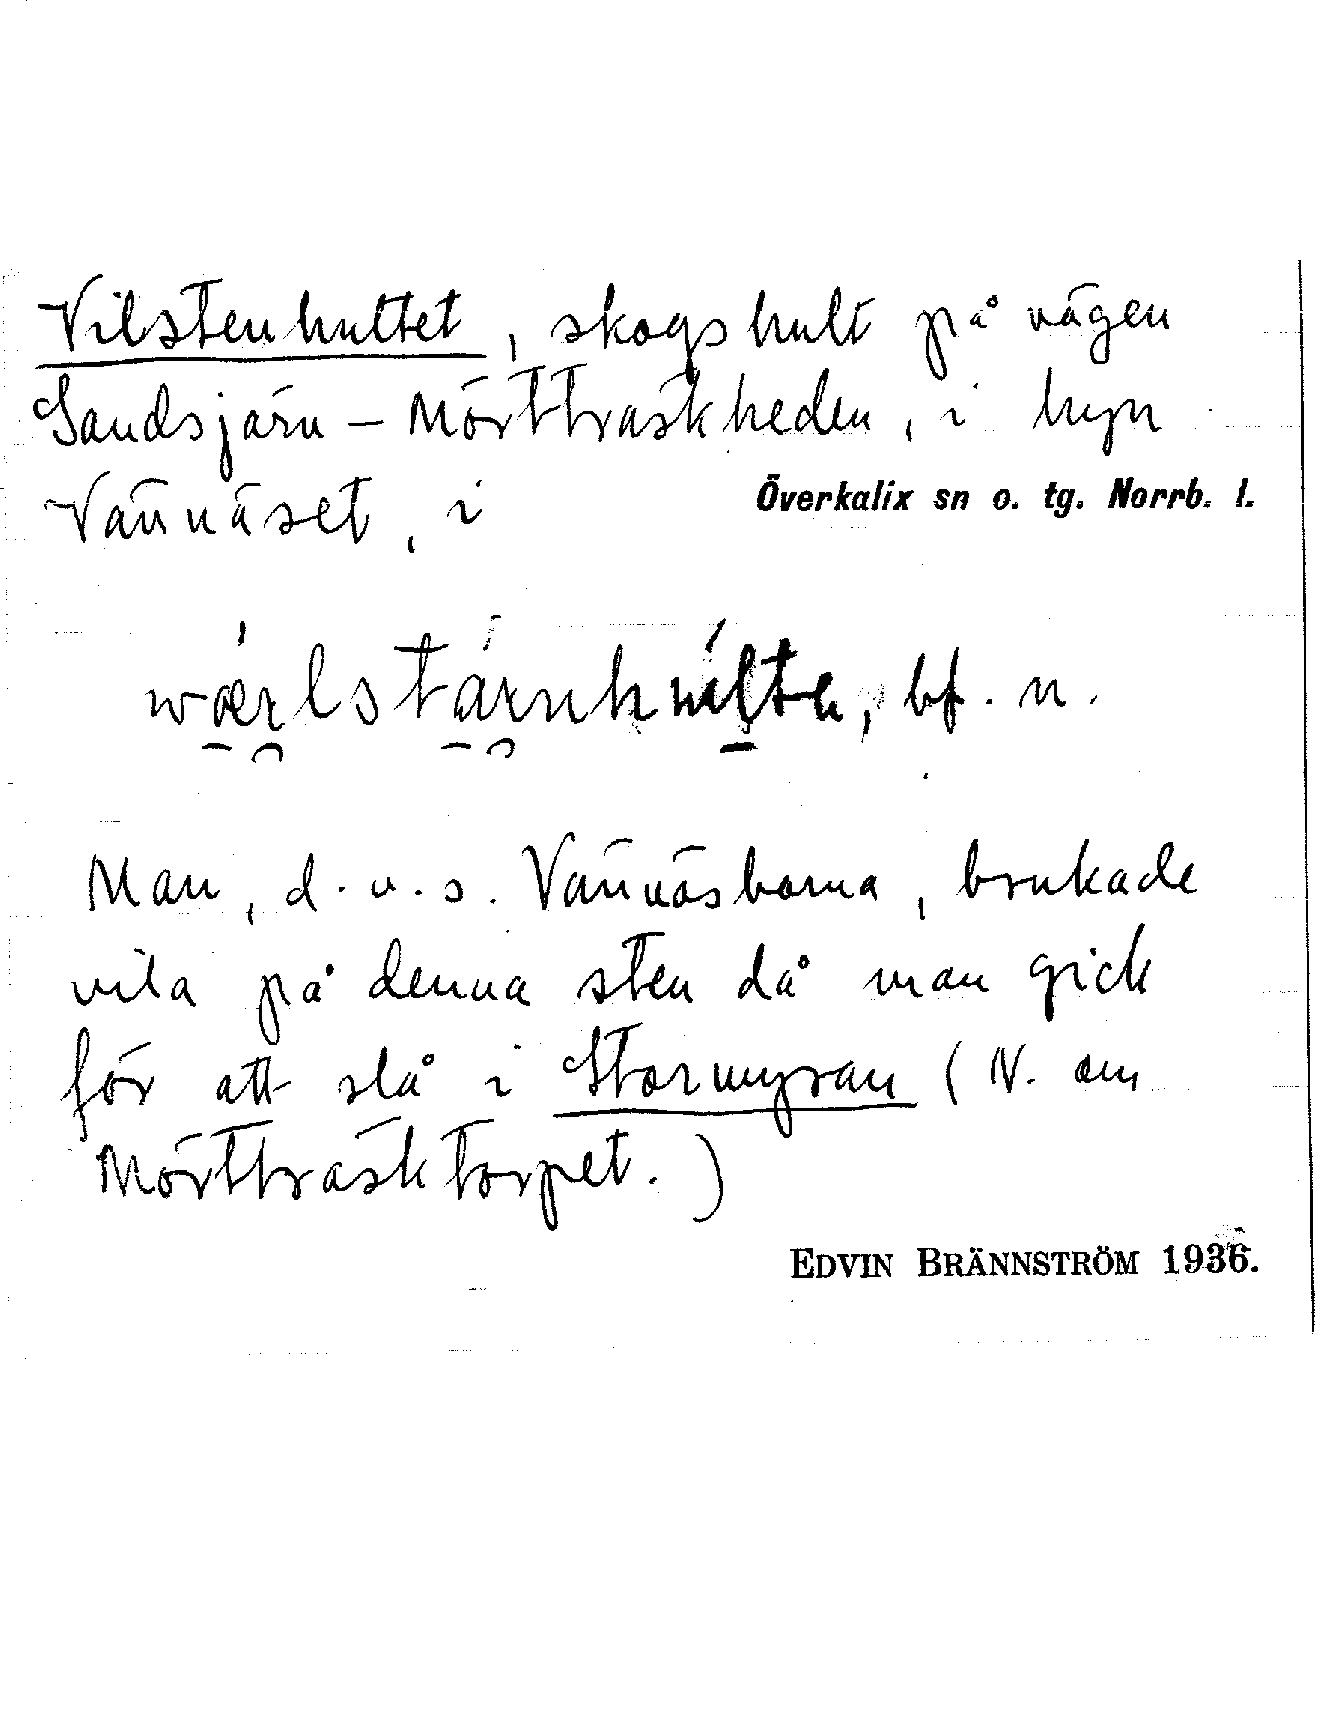 Vilstenhultet, skogshult på vägen
Sandsjärn - Mörtträskheden, i byn
Vännäset, i Överkalix sn o. tg. Norrb. l.
bf. n.
Man, d.v.s. Vännäsborna, brukade
vila på denna sten då man gick
för att slå i Stormyran (N. om
Mörtträsktorpet.)
EDVIN BRÄNNSTRÖM 1936.